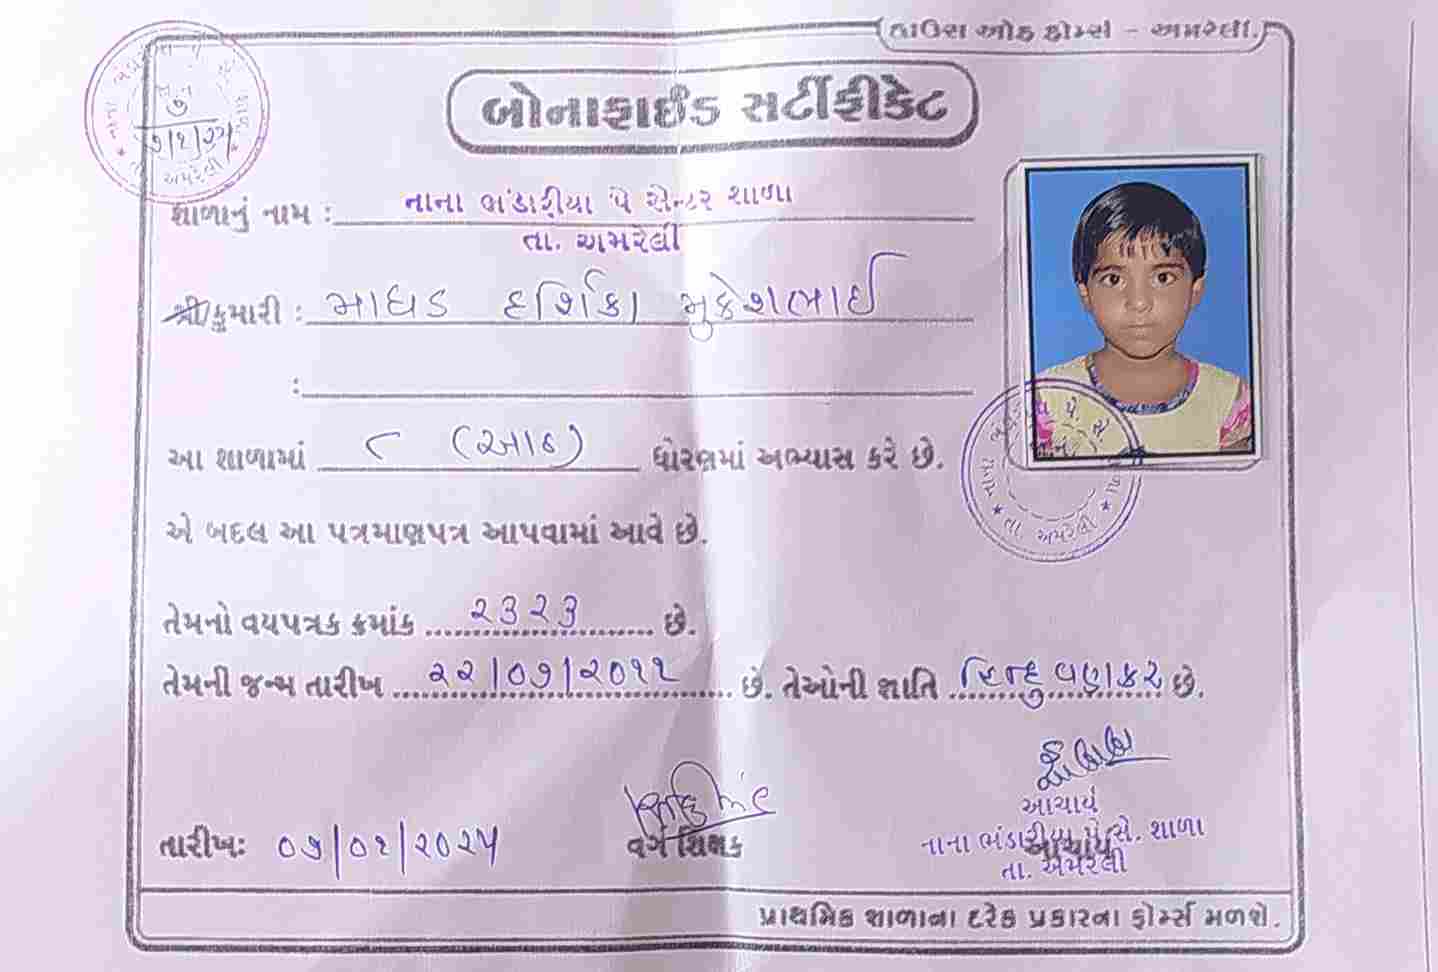 હાઉસ ઓફ ફોર્મ્સ - અમરેલી.
બોનાફાઈડ સર્ટીફીકેટ
૭/૧/૨૫
અમરેલી
શાળાનું નામ : નાના ભંડારીયા પે સેન્ટર શાળા
તા. અમરેલી
શ્રી/કુમારી : માધડ દર્શિકા મુકેશભાઈ
:
આ શાળામાં ૮ (આઠ) ધોરણમાં અભ્યાસ કરે છે.
તા. અમરેલી
એ બદલ આ પત્રમાણપત્ર આપવામાં આવે છે.
તેમનો વયપત્રક ક્રમાંક ૨૩૨૩ છે.
તેમની જન્મ તારીખ ૨૨/૦૭/૨૦૧૧ છે. તેઓની જ્ઞાતિ હિન્દુ વણકર છે.
આચાર્ય
નાના ભંડારીયા પે સે. શાળા
તા. અમરેલી
તારીખઃ ૦૭/૦૧/૨૦૨૫ વર્ગ શિક્ષક આચાર્ય
પ્રાથમિક શાળાના દરેક પ્રકારના ફોર્મ્સ મળશે.